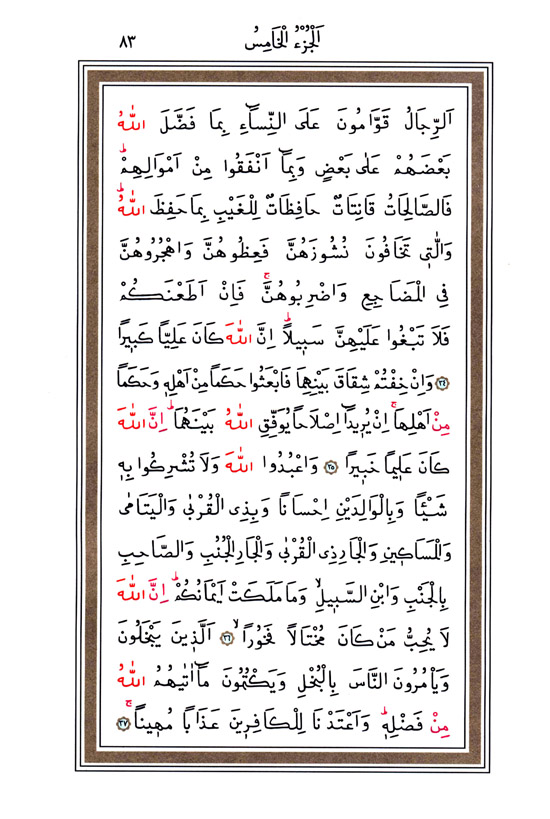 اَلْجُزْءُ الْخَامِسُ ٨٣
اَلرِّجَالُ قَوَّامُونَ عَلَى النِّسَٓاءِ بِمَا فَضَّلَ اللّٰهُ
بَعْضَهُمْ عَلٰى بَعْضٍ وَبِمَٓا اَنْفَقُوا مِنْ اَمْوَالِهِمْۜ
فَالصَّالِحَاتُ قَانِتَاتٌ حَافِظَاتٌ لِلْغَيْبِ بِمَا حَفِظَ اللّٰهُۜ
وَالّٰت۪ي تَخَافُونَ نُشُوزَهُنَّ فَعِظُوهُنَّ وَاهْجُرُوهُنَّ
فِي الْمَضَاجِعِ وَاضْرِبُوهُنَّۚ فَاِنْ اَطَعْنَكُمْ
فَلَا تَبْغُوا عَلَيْهِنَّ سَب۪يلًاۜ اِنَّ اللّٰهَ كَانَ عَلِيًّا كَب۪يرًا
﴿٣٤﴾ وَاِنْ خِفْتُمْ شِقَاقَ بَيْنِهِمَا فَابْعَثُوا حَكَمًا مِنْ اَهْلِه۪ وَحَكَمًا
مِنْ اَهْلِهَاۚ اِنْ يُر۪يدَٓا اِصْلَاحًا يُوَفِّقِ اللّٰهُ بَيْنَهُمَاۜ اِنَّ اللّٰهَ
كَانَ عَل۪يمًا خَب۪يرًا ﴿٣٥﴾ وَاعْبُدُوا اللّٰهَ وَلَا تُشْرِكُوا بِه۪
شَيْـًٔا وَبِالْوَالِدَيْنِ اِحْسَانًا وَبِذِي الْقُرْبٰى وَالْيَتَامٰى
وَالْمَسَاك۪ينِ وَالْجَارِ ذِي الْقُرْبٰى وَالْجَارِ الْجُنُبِ وَالصَّاحِبِ
بِالْجَنْبِ وَابْنِ السَّب۪يلِۙ وَمَا مَلَكَتْ اَيْمَانُكُمْۜ اِنَّ اللّٰهَ
لَا يُحِبُّ مَنْ كَانَ مُخْتَالًا فَخُورًاۙ ﴿٣٦﴾ اَلَّذ۪ينَ يَبْخَلُونَ
وَيَأْمُرُونَ النَّاسَ بِالْبُخْلِ وَيَكْتُمُونَ مَٓا اٰتٰيهُمُ اللّٰهُ
مِنْ فَضْلِه۪ۜ وَاَعْتَدْنَا لِلْكَافِر۪ينَ عَذَابًا مُه۪ينًاۚ ﴿٣٧﴾